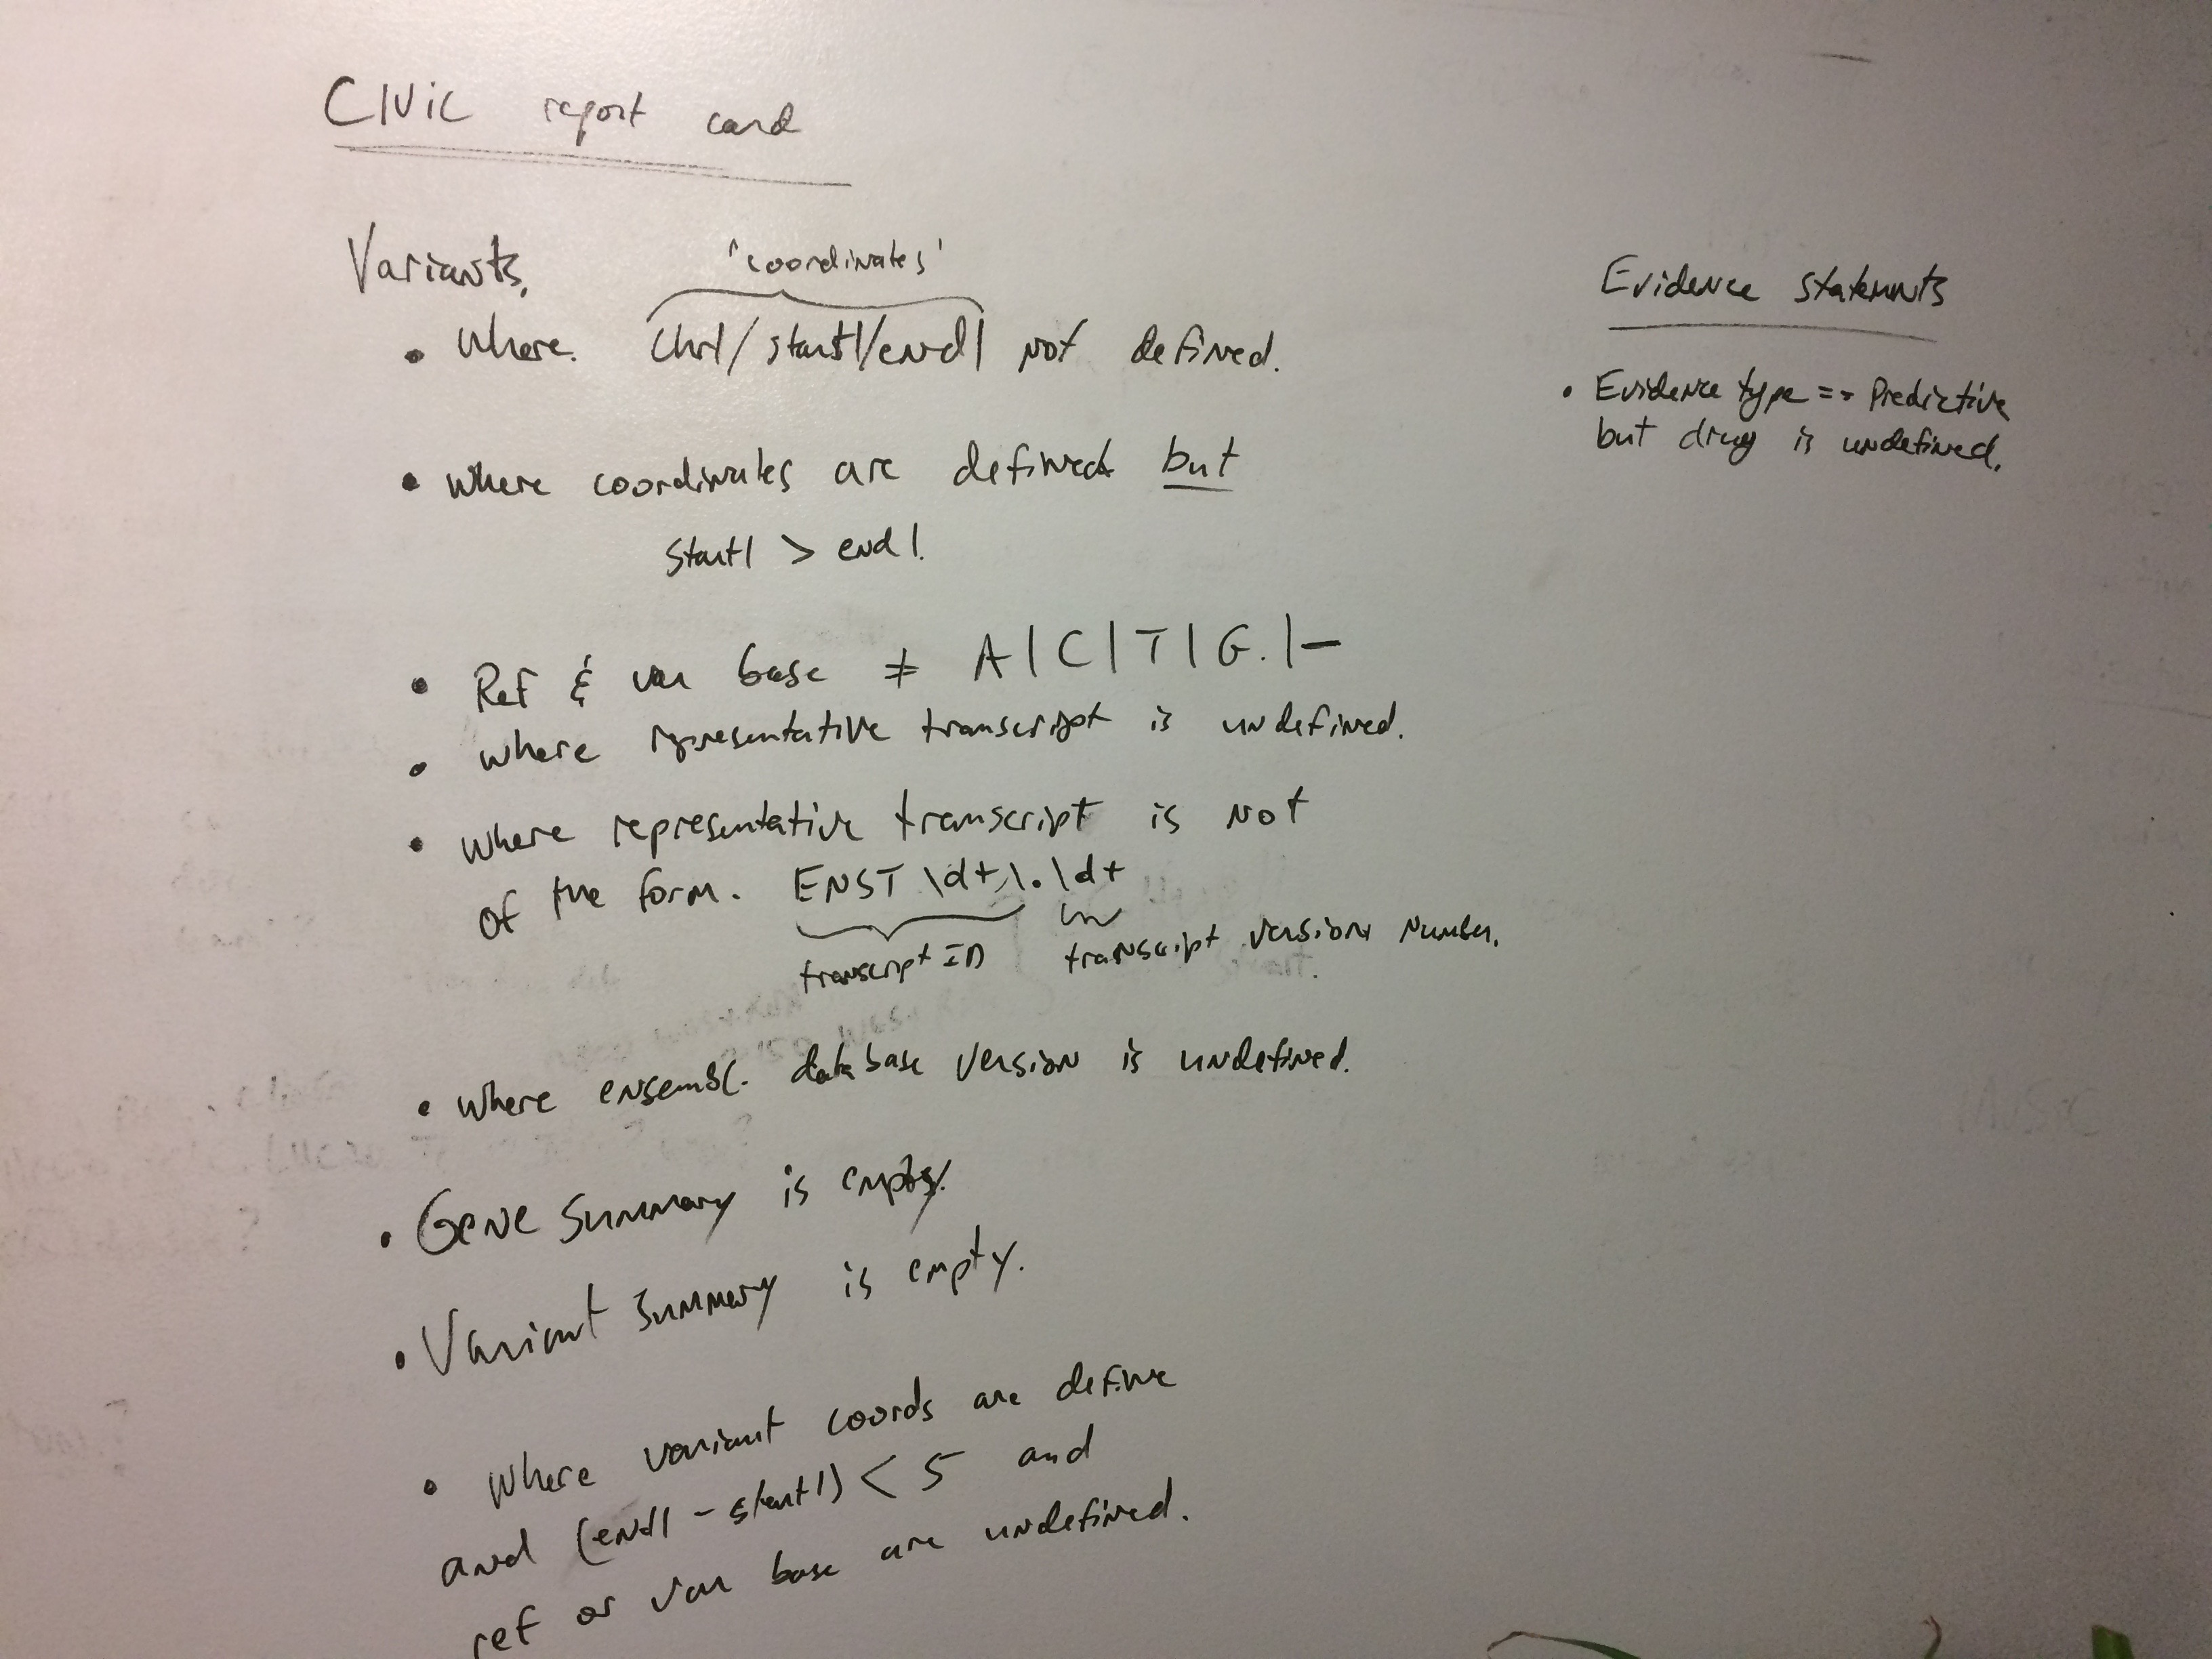 CIViC report card
Variants,
'coordinates'
• Where. Chr1/start1/end1 not defined.
• where coordinates are defined but
start1 > end1.
• Ref & var base ≠ A|C|T|G.|-
• where representative transcript is undefined.
• where representative transcript is not
of the form. ENST\d+\.\d+
transcript ID transcript version number.
• where ensembl database version is undefined.
• Gene Summary is empty.
• Variant Summary is empty.
• where variant coords are define
and (end1 - start1) < 5 and
ref or var base are undefined.
Evidence statements
• Evidence type == Predictive
but drug is undefined.